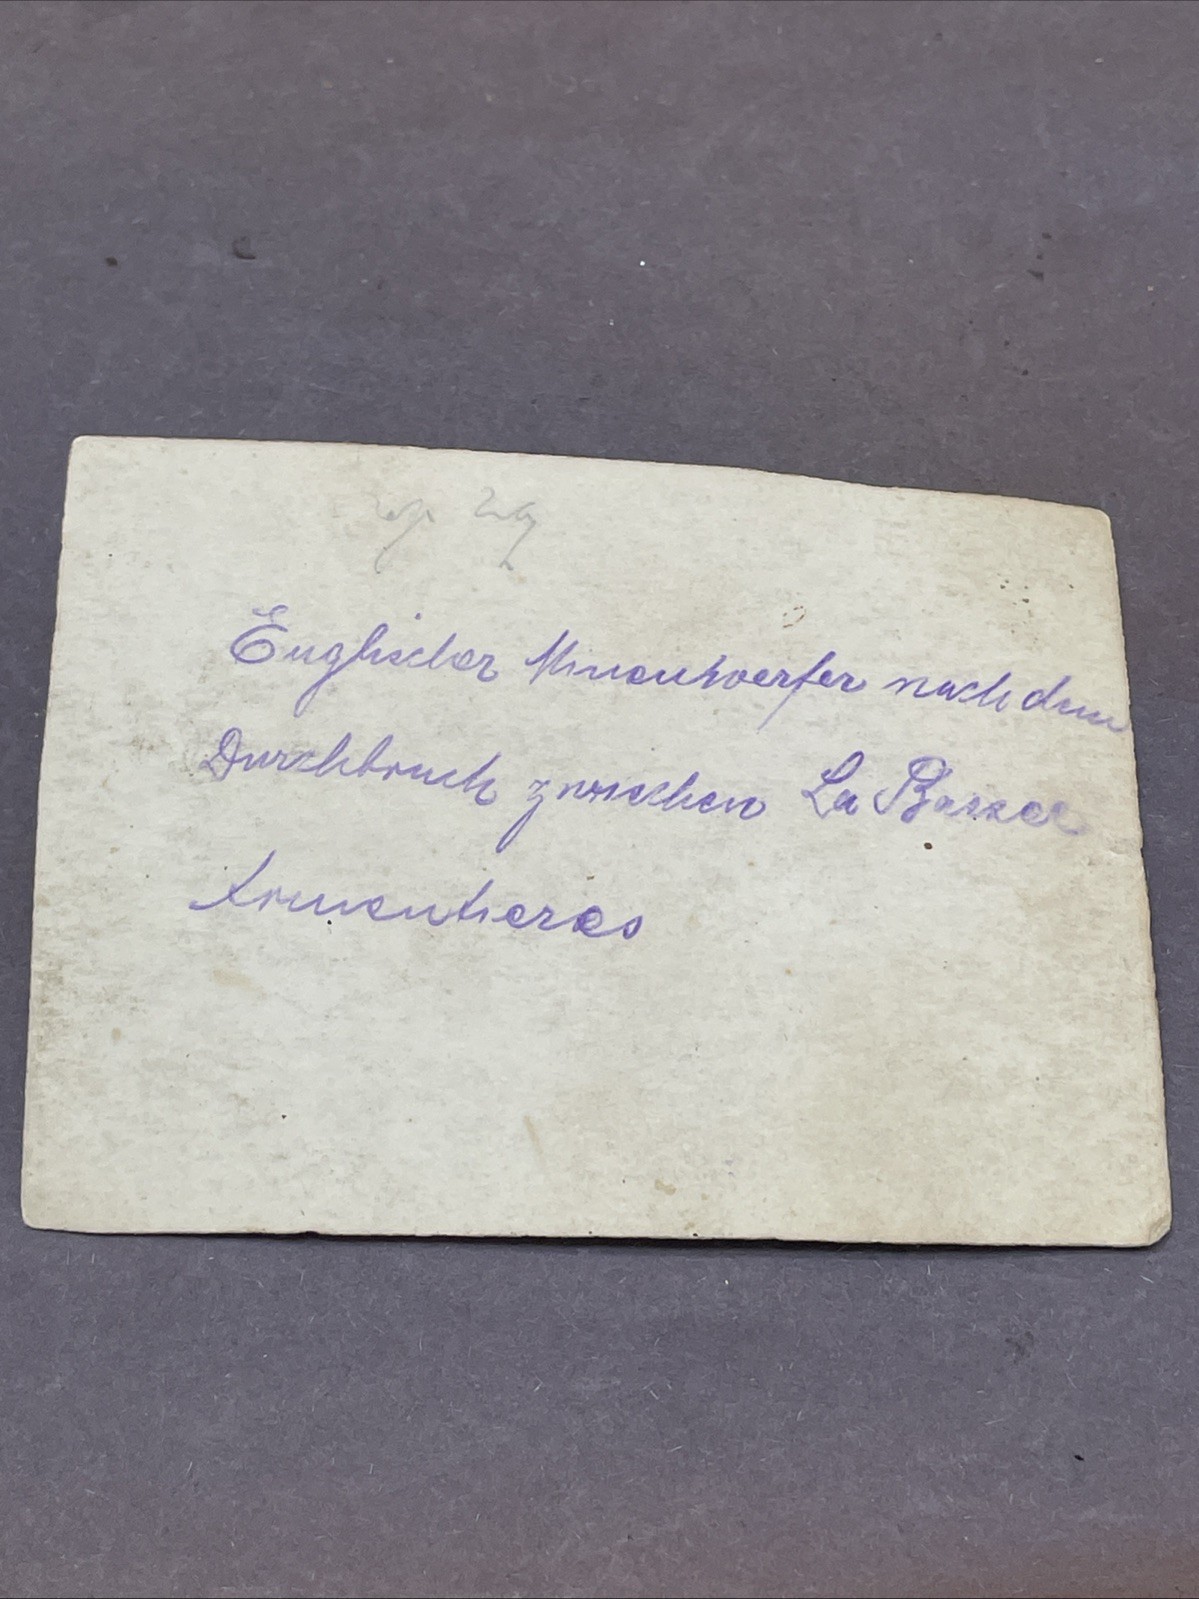 Englischer Minenwerfer nach dem
Durchbruch zwischen La Bassee
Armentieres